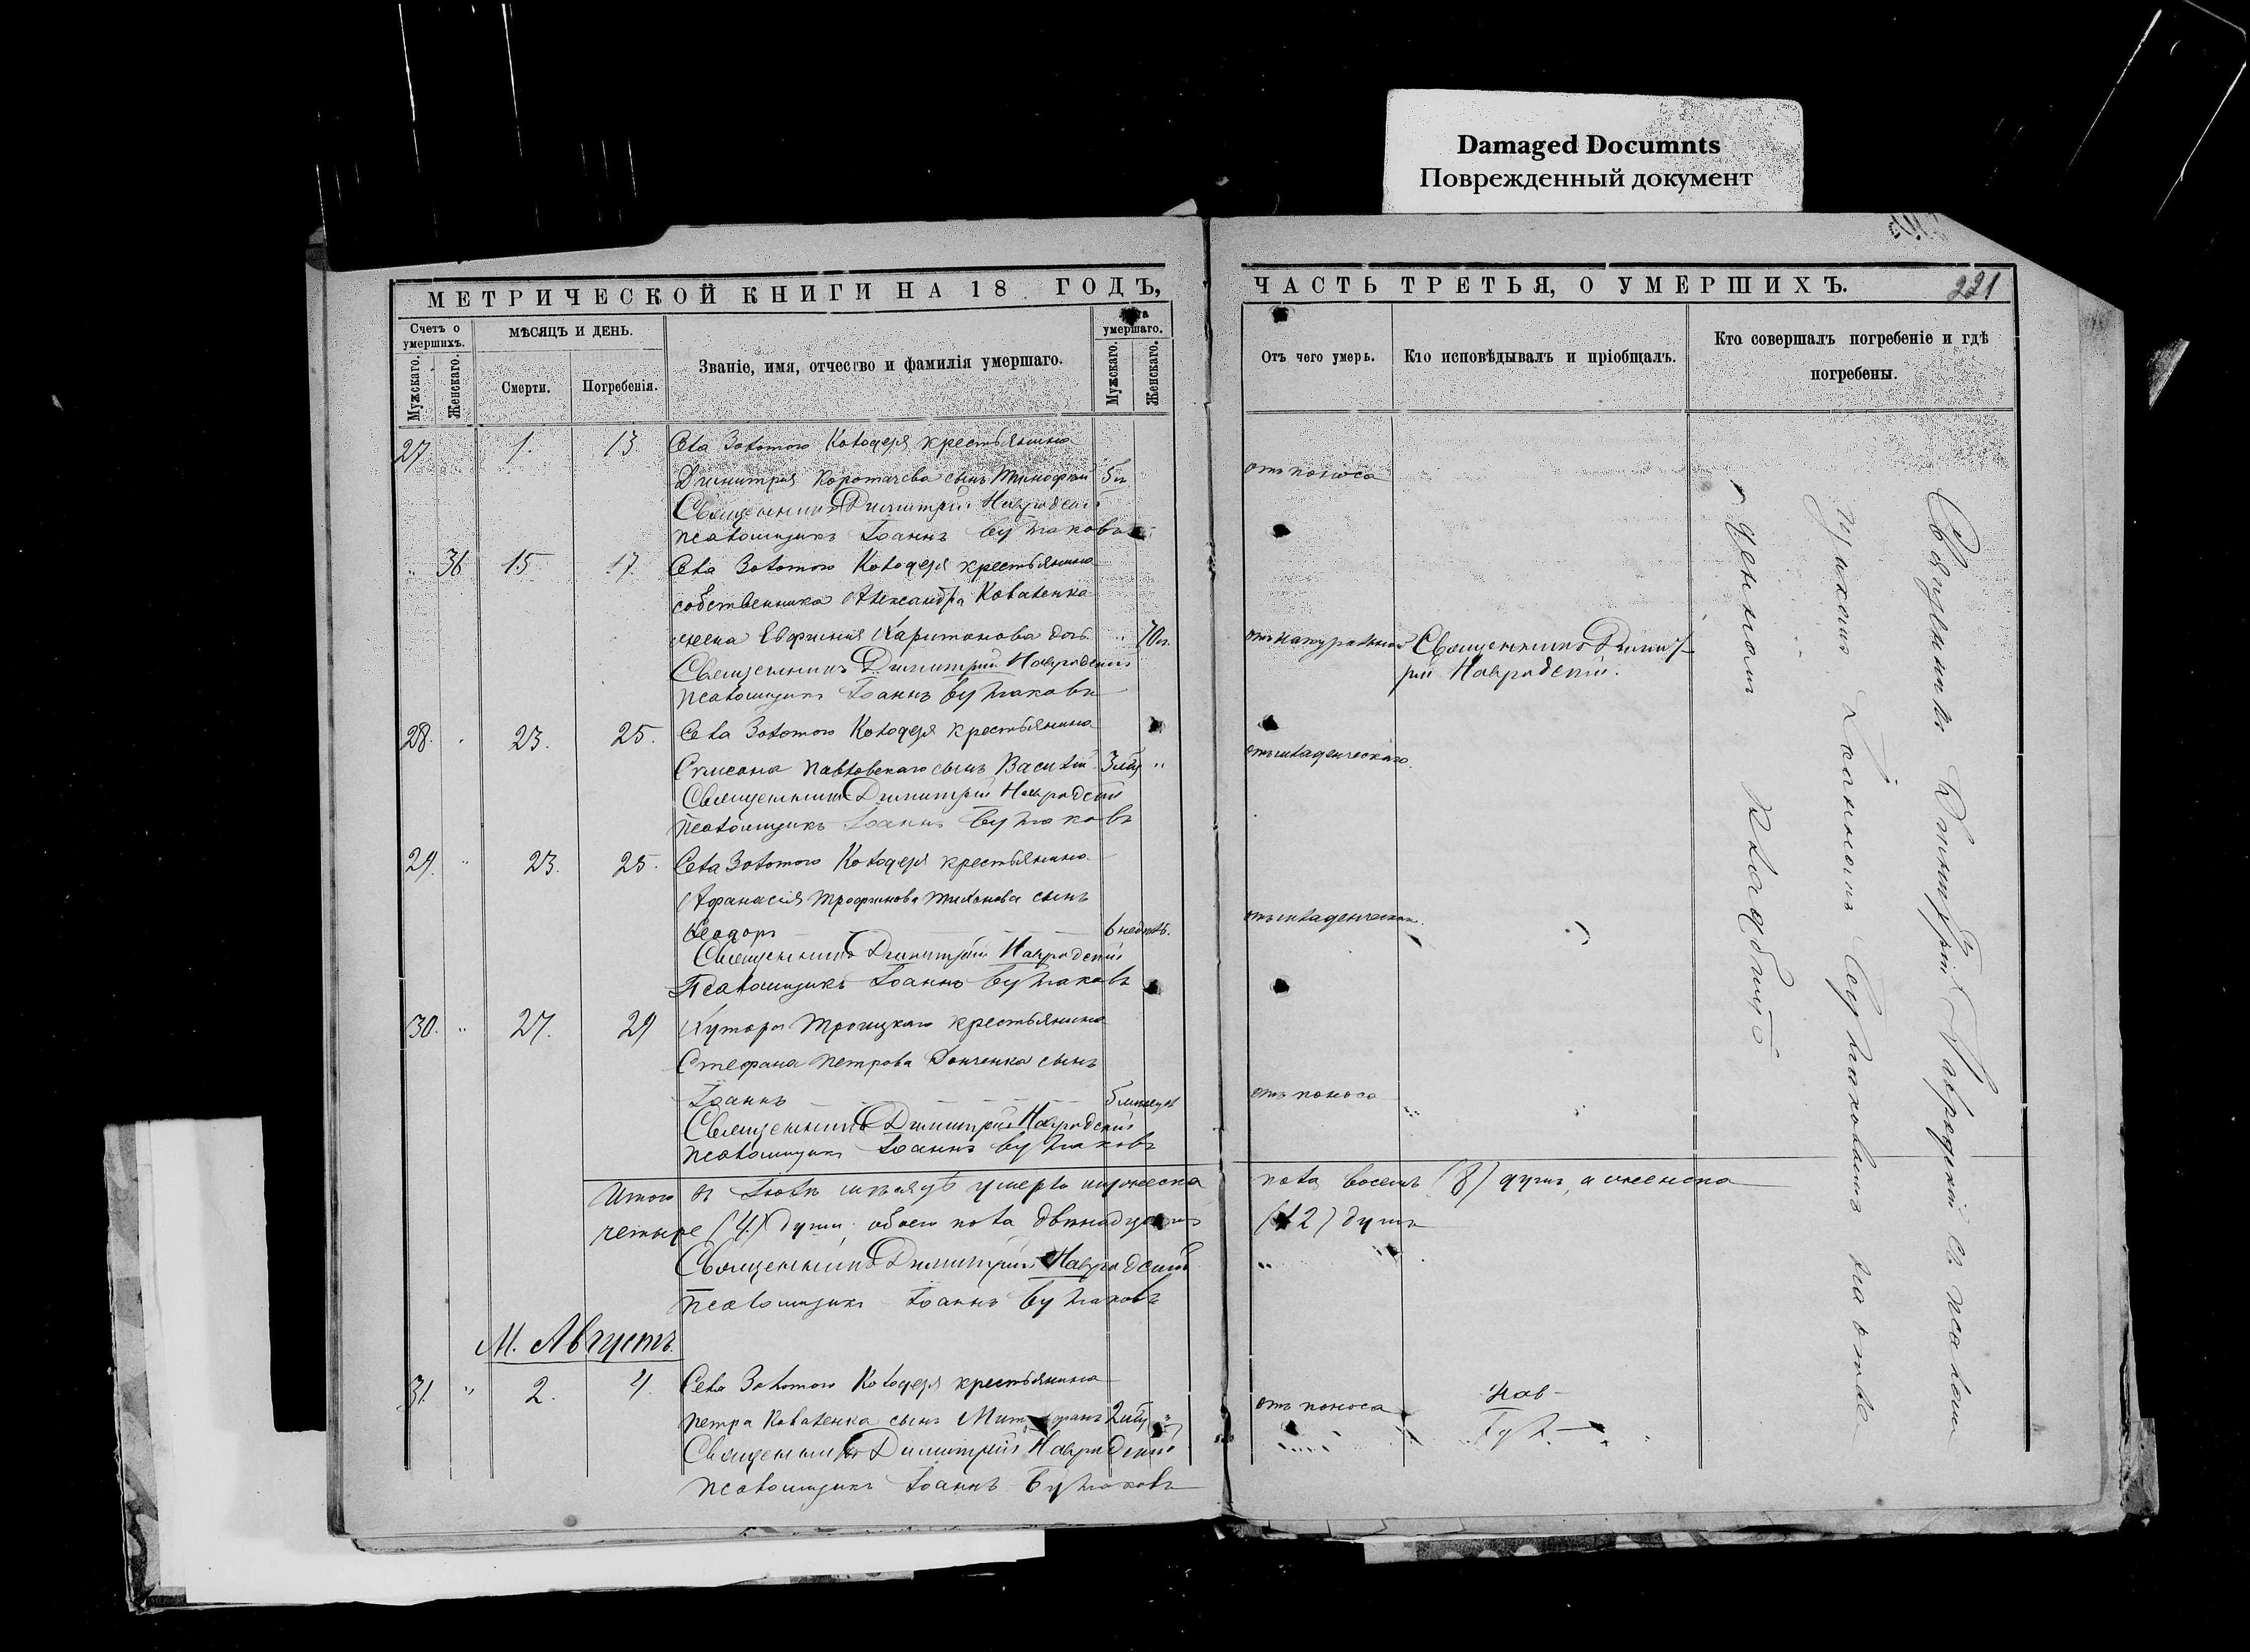 Damaged Documnts
Поврежденный документ
МЕТРИЧЕСКОЙ КНИГИ НА 18 ГОДЪ,
Счетъ о умершихъ.
МѢСЯЦЪ И ДЕНЬ.
Званіе, имя, отчество и фамилія умершаго.
умершаго.
Мужскаго.
Женскаго.
Смерти.
Погребенія.
Мужскаго.
Женскаго.
27 1. 13 Села Золотого Колодезя крестьянина
Димитрія Коротаева сынъ Тимофей 5
Священникъ Димитрій Навродскій
Псаломщикъ Іоаннъ Бутаковъ
" 36 15 17. Села Золотого Колодезя крестьянина
собственника Александра Коваленка
жена Евфимія Харитонова дочь " 70 л.
Священникъ Димитрій Навродскій
Псаломщикъ Іоаннъ Бутаковъ
28. 23. 25. Села Золотого Колодезя крестьянина
Симеона Павловскаго сынъ Василій 3 мѣс "
Священникъ Димитрій Навродскій
Псаломщикъ Іоаннъ Бутаковъ
29. " 23. 25. Села Золотого Колодезя крестьянина
Афанасія Трофимова Тихонова сынъ
Ѳеодоръ 6 недѣль.
Священникъ Димитрій Навродскій
Псаломщикъ Іоаннъ Бутаковъ
30. " 27. 29 Хутора Троицкаго крестьянина
Стефана Петрова сынъ
Іоаннъ 5 мѣсяцев
Священникъ Димитрій Навродскій
Псаломщикъ Іоаннъ Бутаковъ
Итого въ Іюлѣ мѣсяцѣ умерло мужеска
четыре (4) души, обоего пола двѣнадцать
Священникъ Димитрій Навродскій
Псаломщикъ Іоаннъ Бутаковъ
М. Августъ.
31. " 2. 4. Села Золотого Колодезя крестьянина
Петра Коваленка сынъ Митрофанъ 2 мѣс "
Священникъ Димитрій Навродскій
Псаломщикъ Іоаннъ Бутаковъ
ЧАСТЬ ТРЕТЬЯ, О УМЕРШИХЪ.
221
Отъ чего умеръ.
Кто исповѣдывалъ и пріобщалъ.
Кто совершалъ погребеніе и гдѣ погребены.
отъ поноса
отъ натуральной Священникъ Димит
рій Навродскій.
отъ младенческаго.
отъ младенческаго.
отъ поноса
пола восемь (8) душъ, а женска
(12) душъ
отъ поноса
Нав-
Священникъ Димитрій Навродскій съ псалом
щикомъ Іоанномъ Бутаковымъ на
кладбищѣ